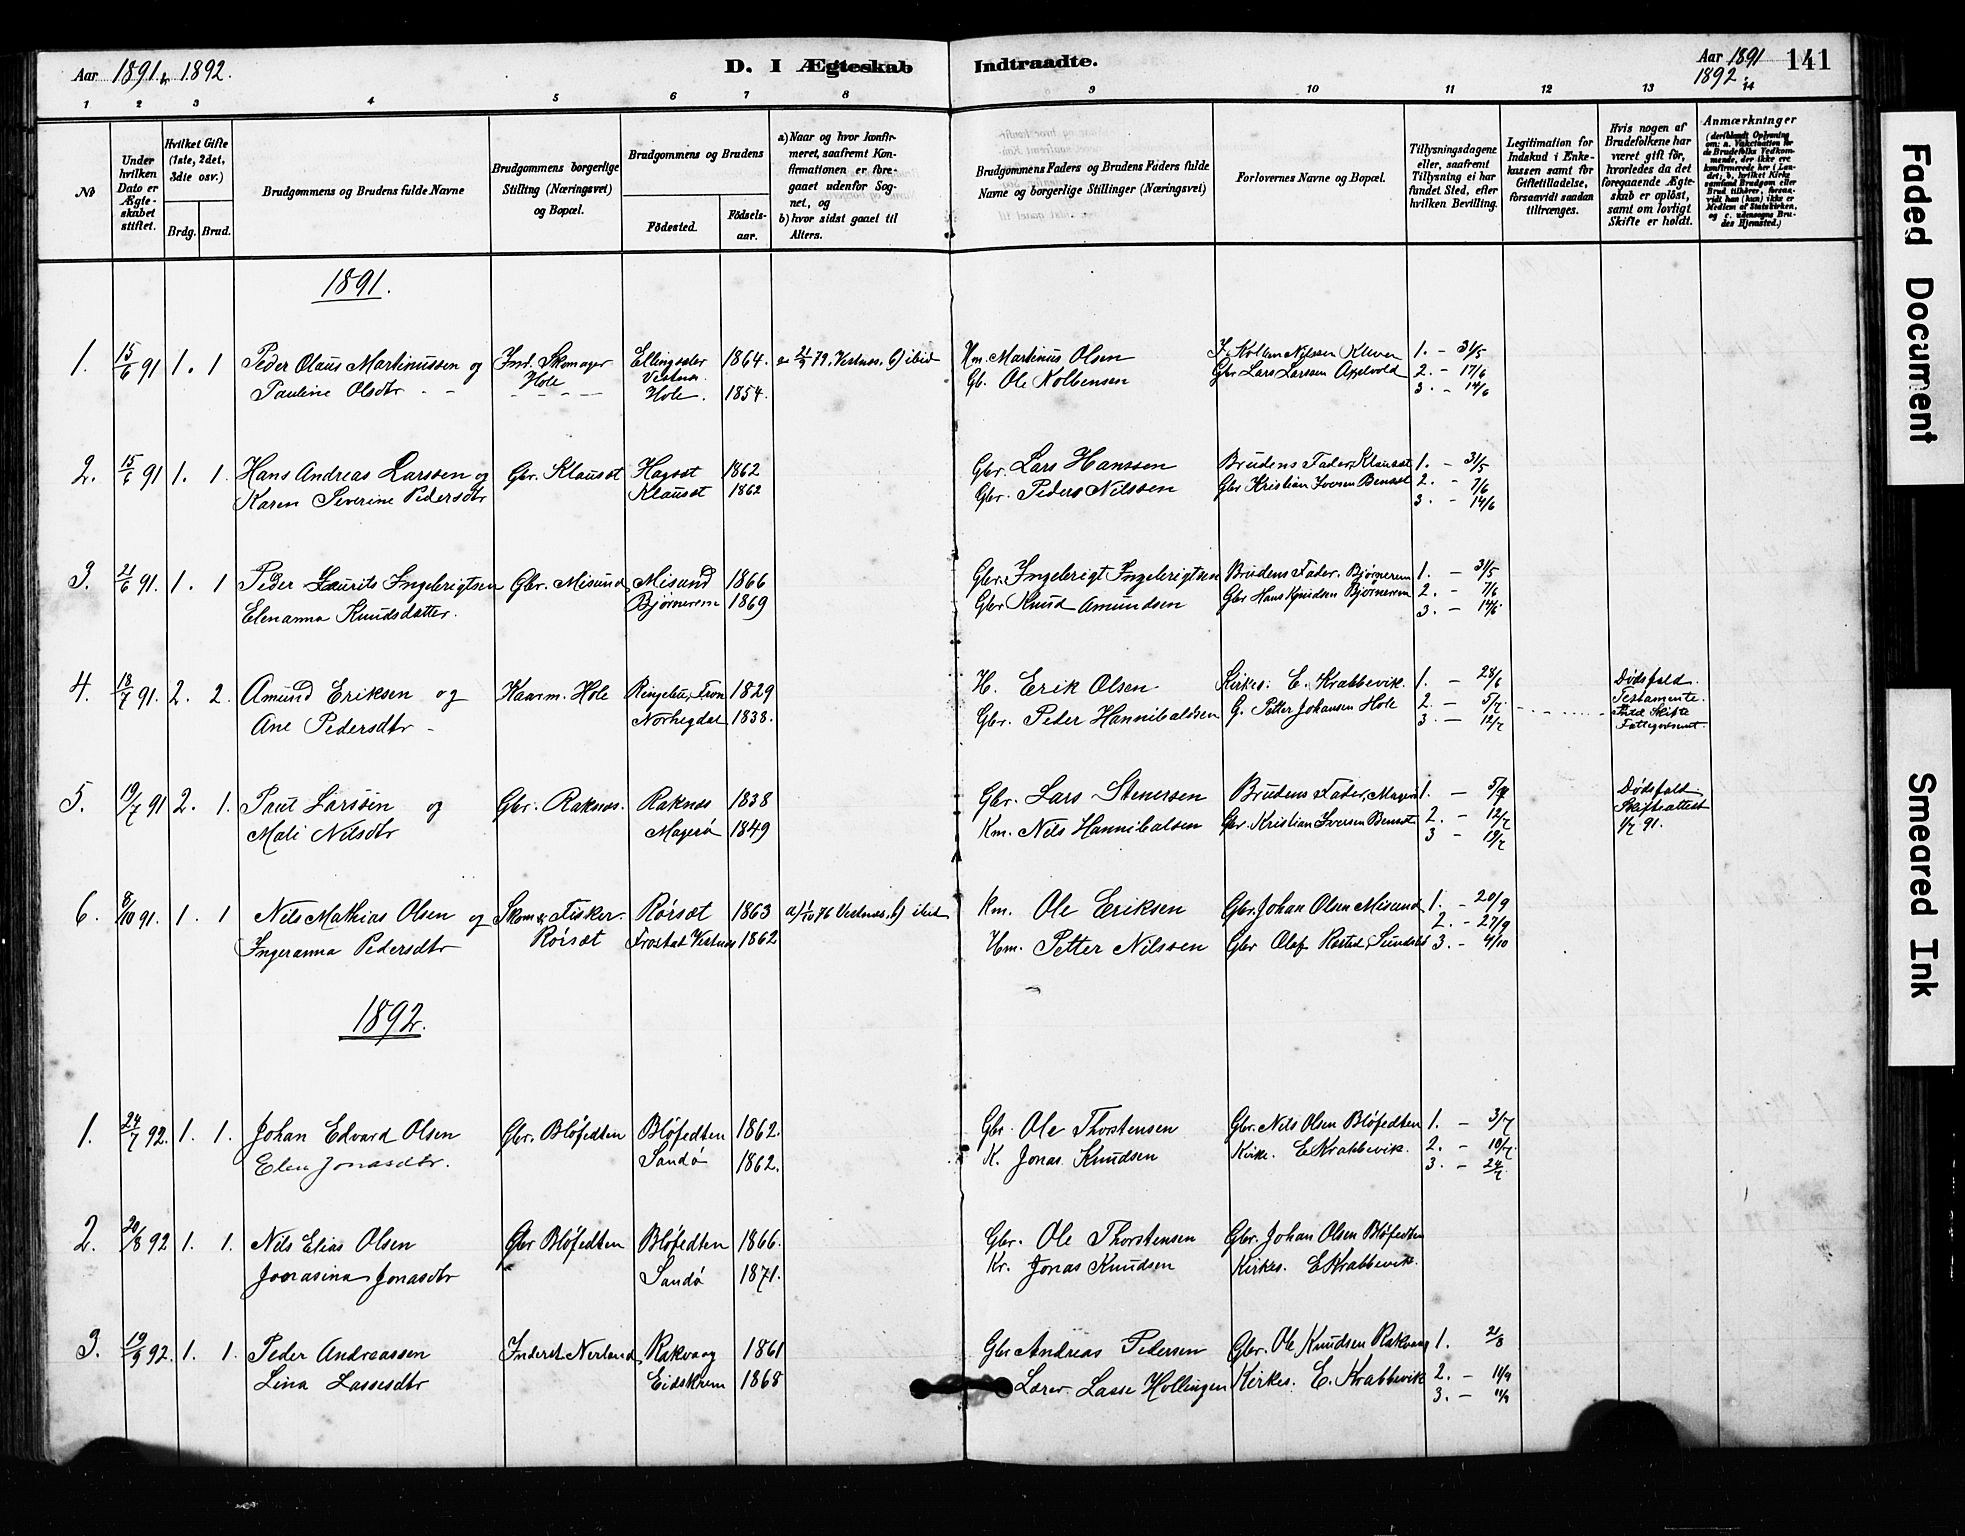 Aar 1891 & 1892.
D. I Ægteskab Indtraadte.
Aar 1891 141
1892.
1 2 3 4 5 6 7 8 9 10 11 12 13 14
No
Under hvilken Dato er Ægteskabet stiftet.
Hvilket Gifte (1ste, 2det, 3die osv.)
Brdg. Brud.
Brudgommens og Brudens fulde Navne
Brudgommens borgerlige Stilling (Næringsvei) og Bopæl.
Brudgommens og Brudens
Födested.
Födsels-aar.
a) Naar og hvor konfirmeret, saafremt Konfirmationen er foregaaet udenfor Sognet, og
b) hvor sidst gaaet til Alters.
Brudgommens Faders og Brudens Faders fulde Navne og borgerlige Stillinger (Næringsvei)
Forlovernes Navne og Bopæl.
Tillysningsdagene eller, saafremt Tillysning ei har fundet Sted, efter hvilken Bevilling.
Legitimation for Indskud i Enkekassen samt for Giftetilladelse, forsaavidt saadan tiltrænges.
Hvis nogen af Brudefolkene har været gift för, hvorledes da det foregaaende Ægteskab er oplöst, samt om lovligt Skifte er holdt.
Anmærkninger
(deriblandt Oplysning om: a. Vakcination for de Brudefolks Vedkommende, der ikke ere konfirmerede her i Landet; b. hvilket Kirkesamfund Brudgom eller Brud tilhører, forsaavidt han (hun) ikke er Medlem af Statskirken, og c. udensogns Brudes Hjemsted.)
1891.
1. 15/6 91 1. 1 Peder Olaus Martinussen og Ind. Skomager Ellingsæter 1864. a. 21/9 79. Vestnes. b) ibid Hm. Martinus Olsen J. Kolben Nilssen Kleven 1. – 31/5
Hole Vestnæs
Pauline Olsdtr - - Hole. 1854. Gb. Ole Kolbensen Gbr Lars Larssen Appelvold 2. – 17/6
3. – 14/6
2. 15/6 91 1. 1. Hans Andreas Larssen og Gbr. Klauset Hagset 1862 Gbr. Lars Hanssen Brudens Fader, Klauset 1. – 31/5
Karen Severine Pedersdtr Klauset 1862 Gbr. Peder Nilssen Gbr Kristian Iversen Benset 2. – 7/6
3. – 14/6
3. 21/6 91. 1. 1 Peder Laurits Ingebrigtsen Gbr. Misund Misund 1866 Gbr. Ingebrigt Ingebrigtsen Brudens Fader. Bjørnerem 1. – 31/5
Elenanna Knudsdatter. Bjørnerem 1869 Gbr Knud Amundsen Gbr Hans Knudsen Bjørnerem 2. – 7/6
3. – 14/6
4. 18/7 91. 2. 2. Amund Eriksen og Kaarm. Hole Ringebu, Fron 1829 H. Erik Olsen. Kirkes. E. Krabbevik. 1. – 28/6 Dødsfald.
Ane Pedersdtr - Norhegdal 1838. Gbr. Peder Hannibalssen G. Petter Johansen Hole 2. – 5/7 Testamente
3. – 12/7
5. 19/7 91 2. 1. Paul Larssen og Gbr. Raknes. Raknes 1838 Gbr. Lars Stenersen Brudens Fader, Magerø 1. – 5/7 Dødsfald
Mali Nilsdtr Magerø 1849 Km. Nils Hannibalsen Gbr. Kristian Iversen Benset 2. – 12/7 Skifteattest
3 – 19/7 1/7 91.
6. 8/10 91. 1. 1 Nils Mathias Olsen og Skom. & Fisker. Rörsæt 1863 a) 1/10 76 Vestnes. b) ibid Km. Ole Eriksen Gbr. Johan Olsen Misund 1. – 20/9
2. – 27/9
Ingeranna Pedersdtr Rörsæt Frostad Vestnæs 1862 Hm. Petter Nilssen Gbr Olaf Rosted, Sundsbø 3. – 4/10
1892.
1. 24/7 92. 1. 1. Johan Edvard Olsen Gbr. Blöfedten Blöfedten 1862. Gbr. Ole Thorstensen Gbr. Nils Olsen Blöfedten 1. – 3/7
Elen Jonasdtr. Sandö 1862. K. Jonas Knudsen Kirke. E Krabbevik. 2. – 10/7
3. – 24/7
2. 20/8 92 1. 1. Nils Elias Olsen Gbr Blöfedten Blöfedten 1866. Gbr. Ole Thorstensen Gbr. Johan Olsen Blöfedten
Joorasina Jonasdtr Sandö 1871. Kr. Jonas Knudsen Kirkes. E Krabbevik.
3. 19/9 92. 1. 1. Peder Andreassen Inderst Nerland Rakvaag 1861 Gbr Andreas Pedersen Gbr. Ole Knudsen Rakvaag 1. 21/8
Lina Lassesdtr Eidskrem 1868 Lærer Lasse Hollingen Kirkes. E. Krabbevik 2. – 11/9
3. – 11/9
Faded Document
Smeared Ink